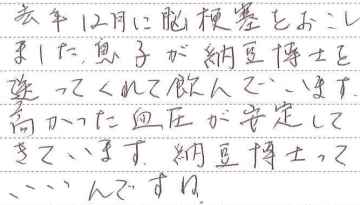 去年12月に脳梗塞をおこし
ました。息子が納豆博士を
送ってくれて飲んでいます。
高かった血圧が安定して
きています。納豆博士って
いいんですね。